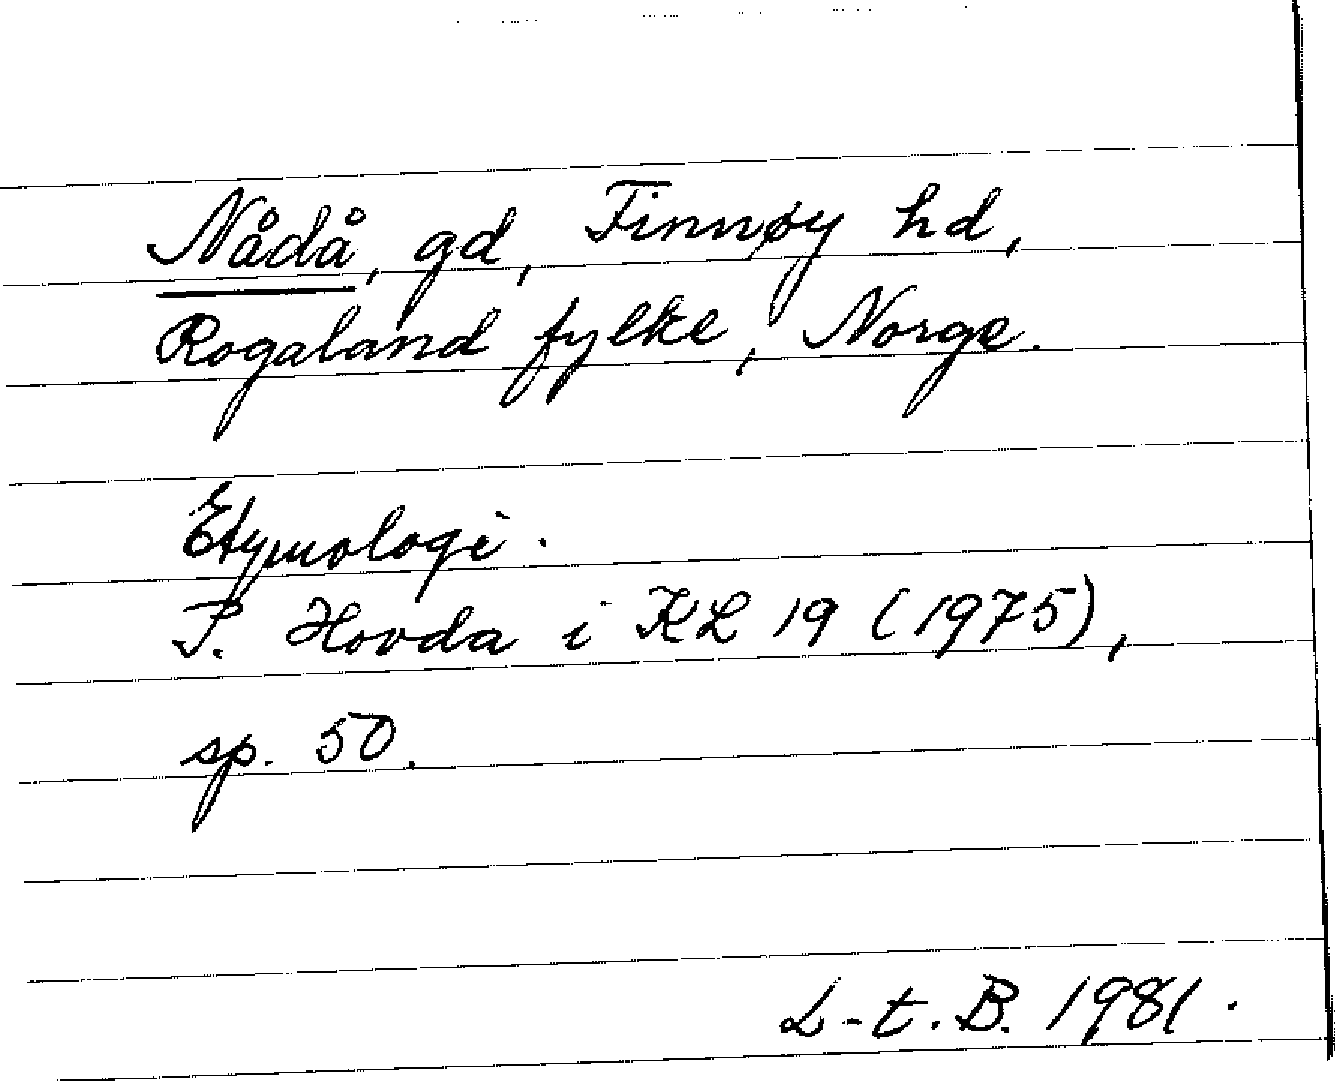 Nådå, gd, Finnøy hd,
Rogaland fylke, Norge.
Etymologi.
P. Hovda i KL 19 (1975),
sp. 50.
L-t. B. 1981.